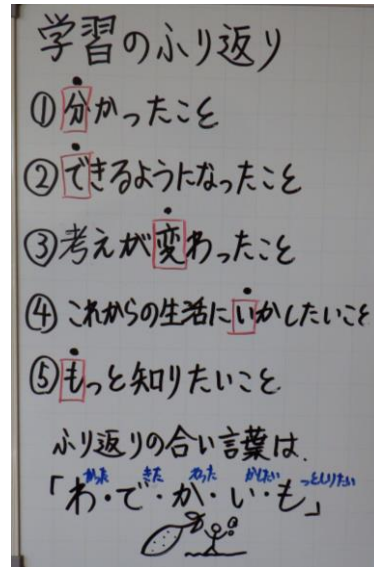 学習のふり返り
①分かったこと
②できるようになったこと
③考えが変わったこと
④これからの生活にいかしたいこと
⑤もっと知りたいこと
ふり返りの合い言葉は、
かった きた わった かしたい っとしりたい
「わ・で・か・い・も」